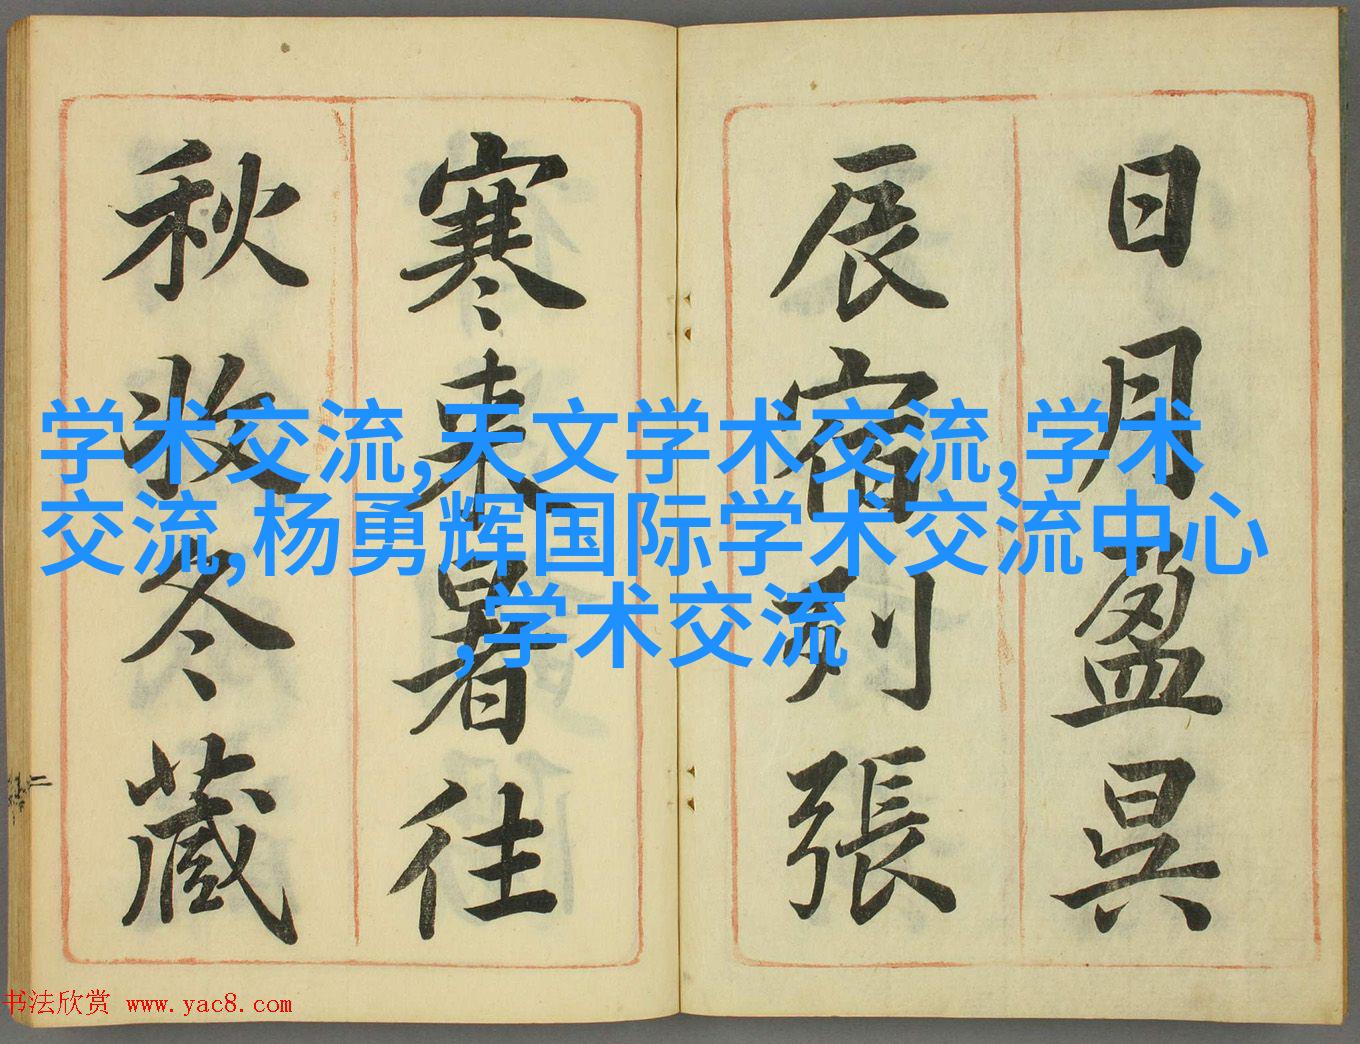 日月盈昃
辰宿列張
寒来暑往
秋收冬藏
学术交流,天文学术交流,学术
交流,杨勇辉国际学术交流中心
,学术交流
书法欣赏 www.yac8.com